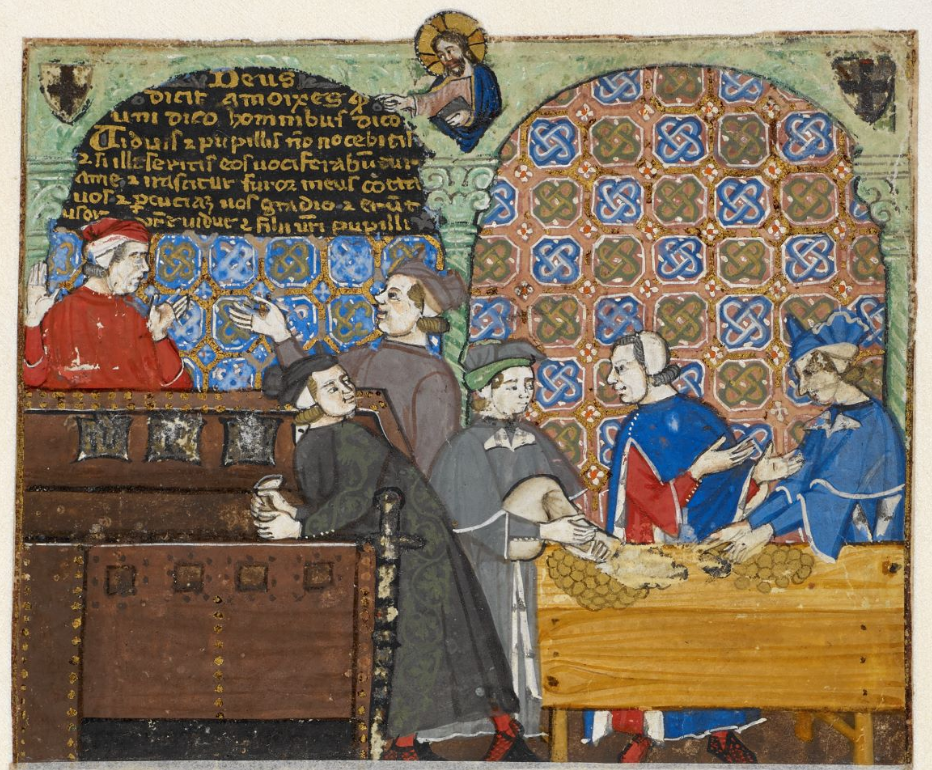 Deus
dicit amoixes q
uni dico hominibus dico
Uiduis ⁊ pupillis nō nocebitis
⁊ si illeseritis eos vociferabū
ame, ⁊ irascitur furor meus cōtra
uos ⁊ pcuciaz uos gladio ⁊ erūt
uidue ⁊ filii uri pupilli